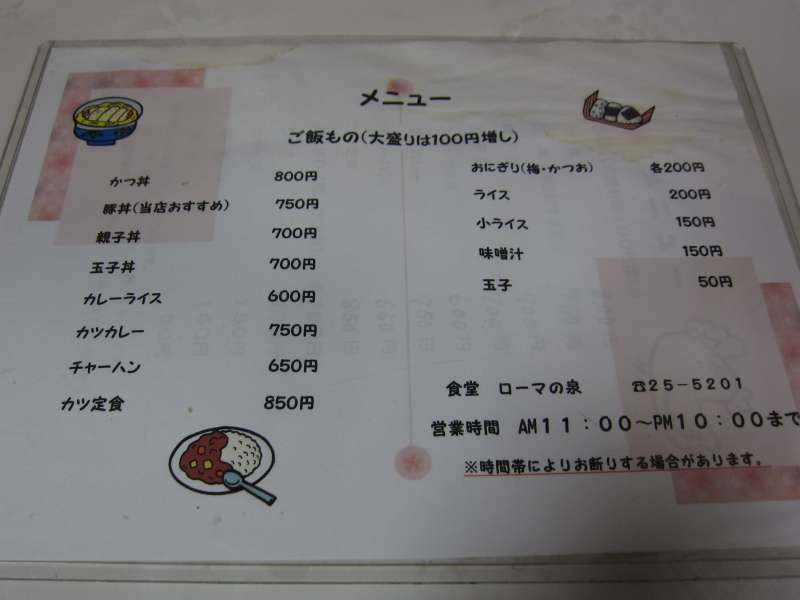 メニュー
ご飯もの(大盛りは100円増し)
かつ丼 800円
豚丼(当店おすすめ) 750円
親子丼 700円
玉子丼 700円
カレーライス 600円
カツカレー 750円
チャーハン 650円
カツ定食 850円
おにぎり(梅・かつお) 各200円
ライス 200円
小ライス 150円
味噌汁 150円
玉子 50円
食堂 ローマの泉 ☎25-5201
営業時間 AM11:00~PM10:00まで
※時間帯によりお断りする場合があります。